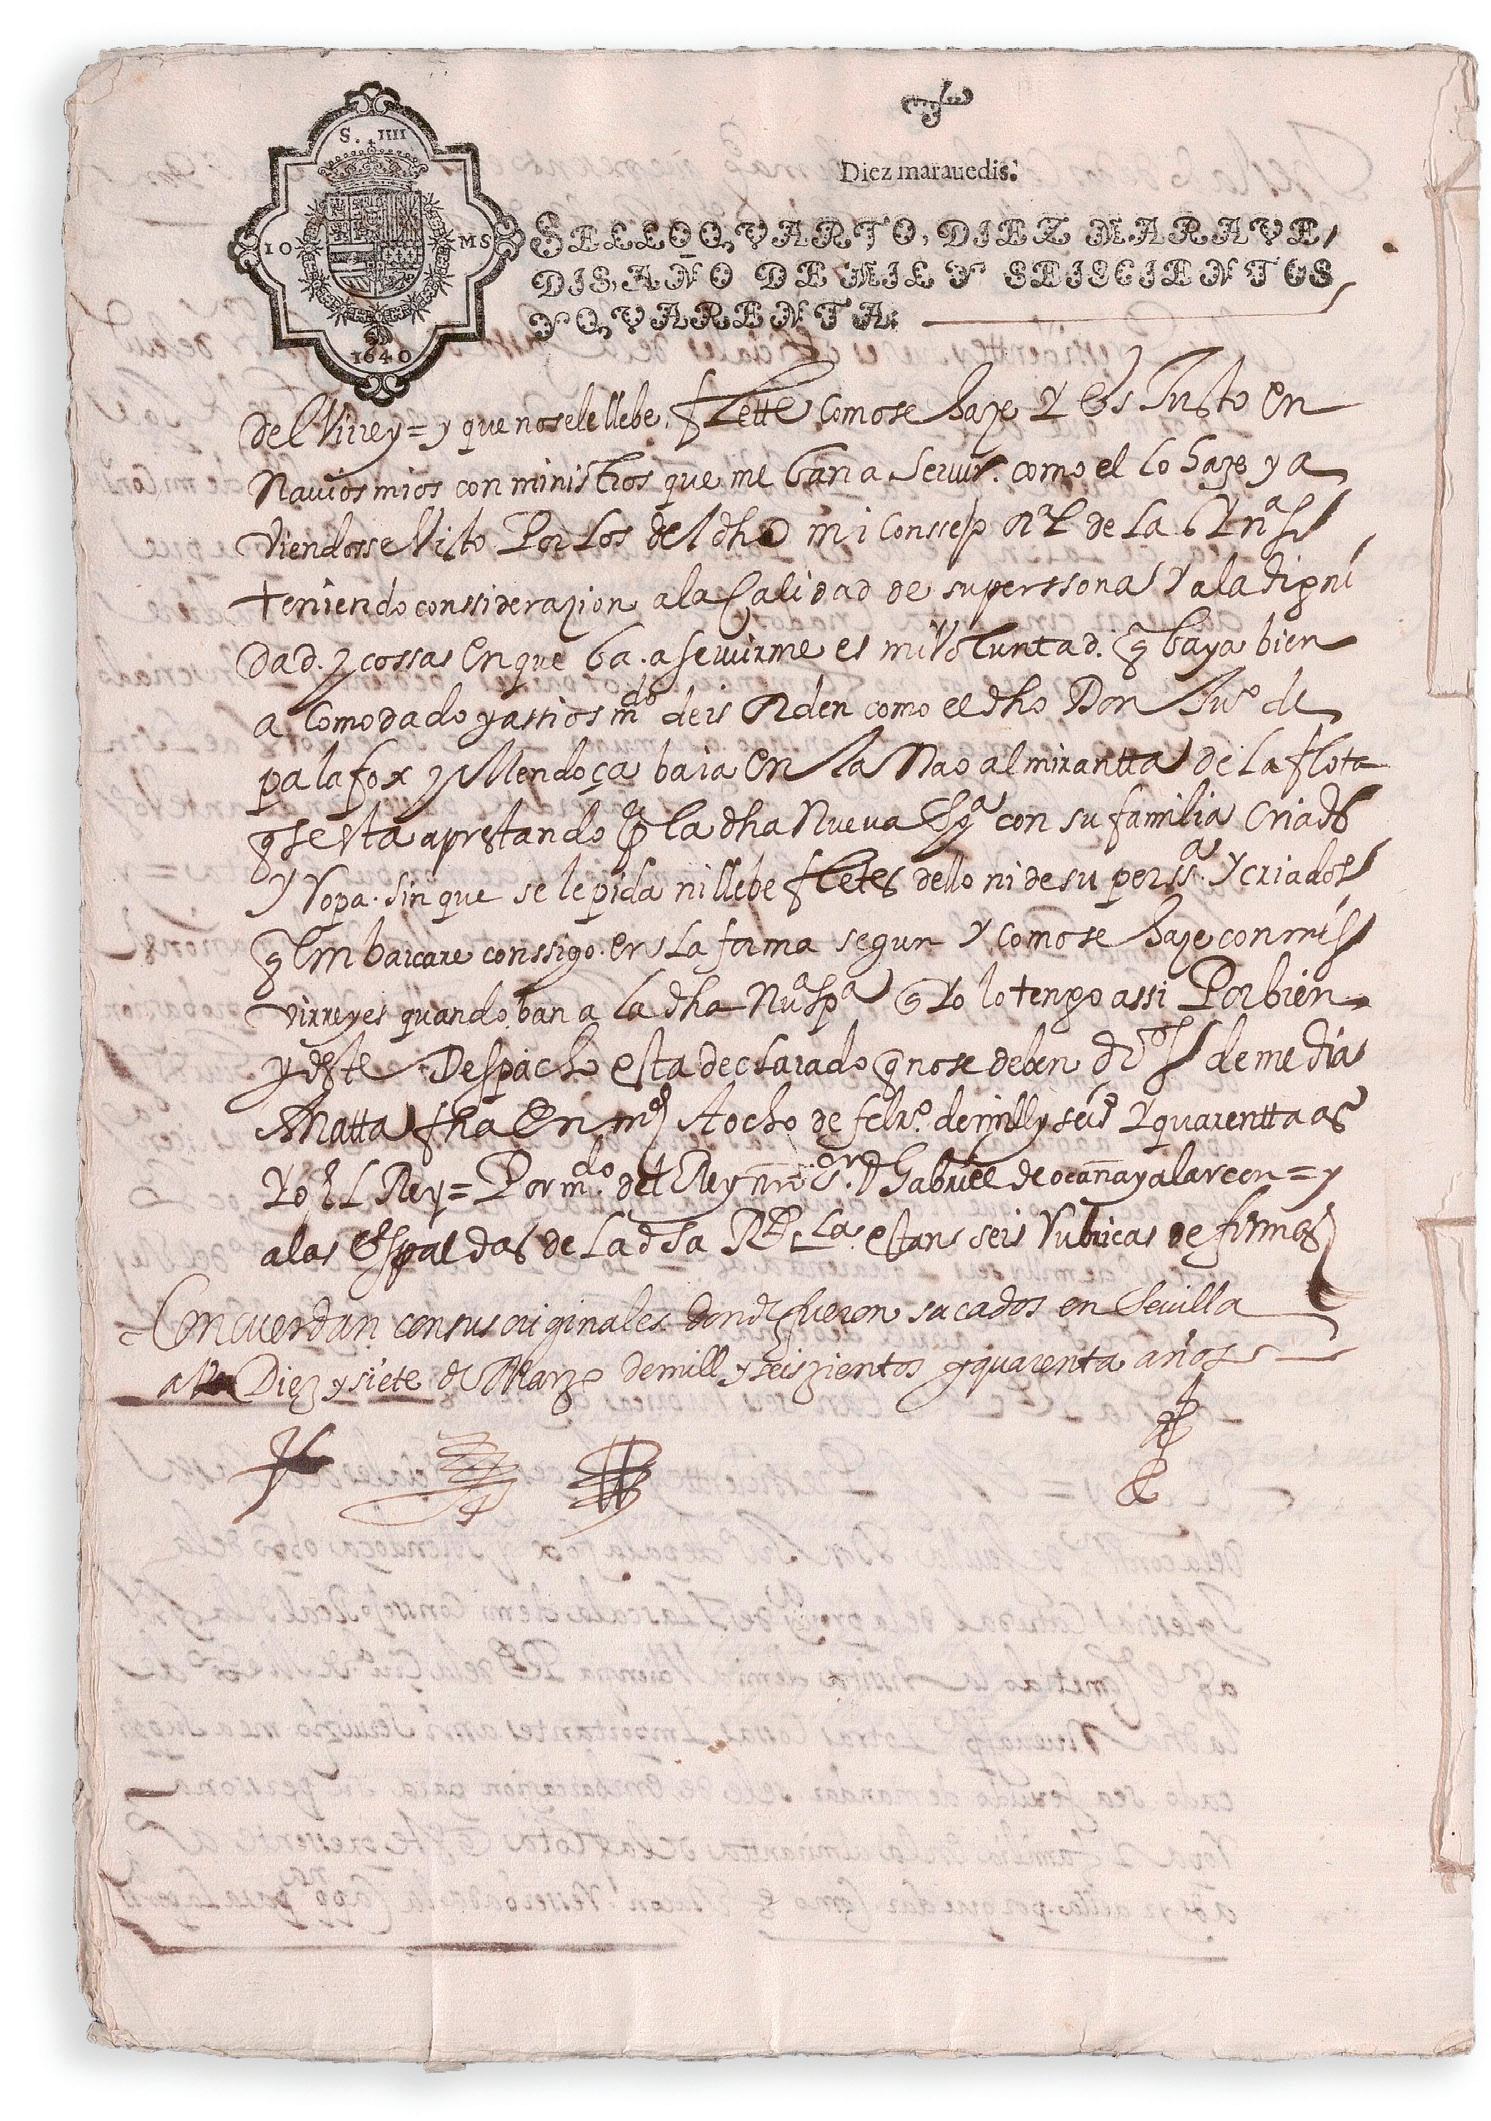 S. IIII
10 MS
1640
Diez marauedis.
SELLO QVARTO, DIEZ MARAVE/
DIS, AÑO DE MIL Y SEISCIENTOS
Y QVARENTA.
del Virrey = y que no se le llebe flette como se haze Y es Justo en
nauios mios con ministros que me ban a seruir. como el lo haze y a
viendosse Visto Por los del dho mi conssejo Rl de la Yndas
teniendo conssiderazion a la Calidad de su perssona Y a la digni
dad. y cossas en que ba. a seruirme es mi Voluntad. q baya bien
acomodado y assi os mdo deis orden como el dho Don Juo de
palafox y Mendoça baia en la Nao almirantta de la flota
q se esta aprestando pa la dha Nueva Espa con su familia criados
y Ropa. sin que se le pida ni llebe fletes dello ni de su perssa. Y criados
q embarcare conssigo. en la forma segun Y como se haze con mis
virreyes quando ban a la dha Nua Spa q Yo lo tengo assi Por bien
y deste Despacho esta declarado q no se deben dros de media
Anatta fha en Md A ocho de febro. de mill y seiss Y quarentta as
Yo EL Rey = Por mdo. del Rey nro Sr. D Gabriel de ocaña y alarcon = y
a las espaldas de la dha Rl Cla. estan seis Rubricas de firmas
Concuerdan con sus originales donde fueron sacados en Seuilla
a Diez y siete de Marzo de mill y seiszientos y quarenta años